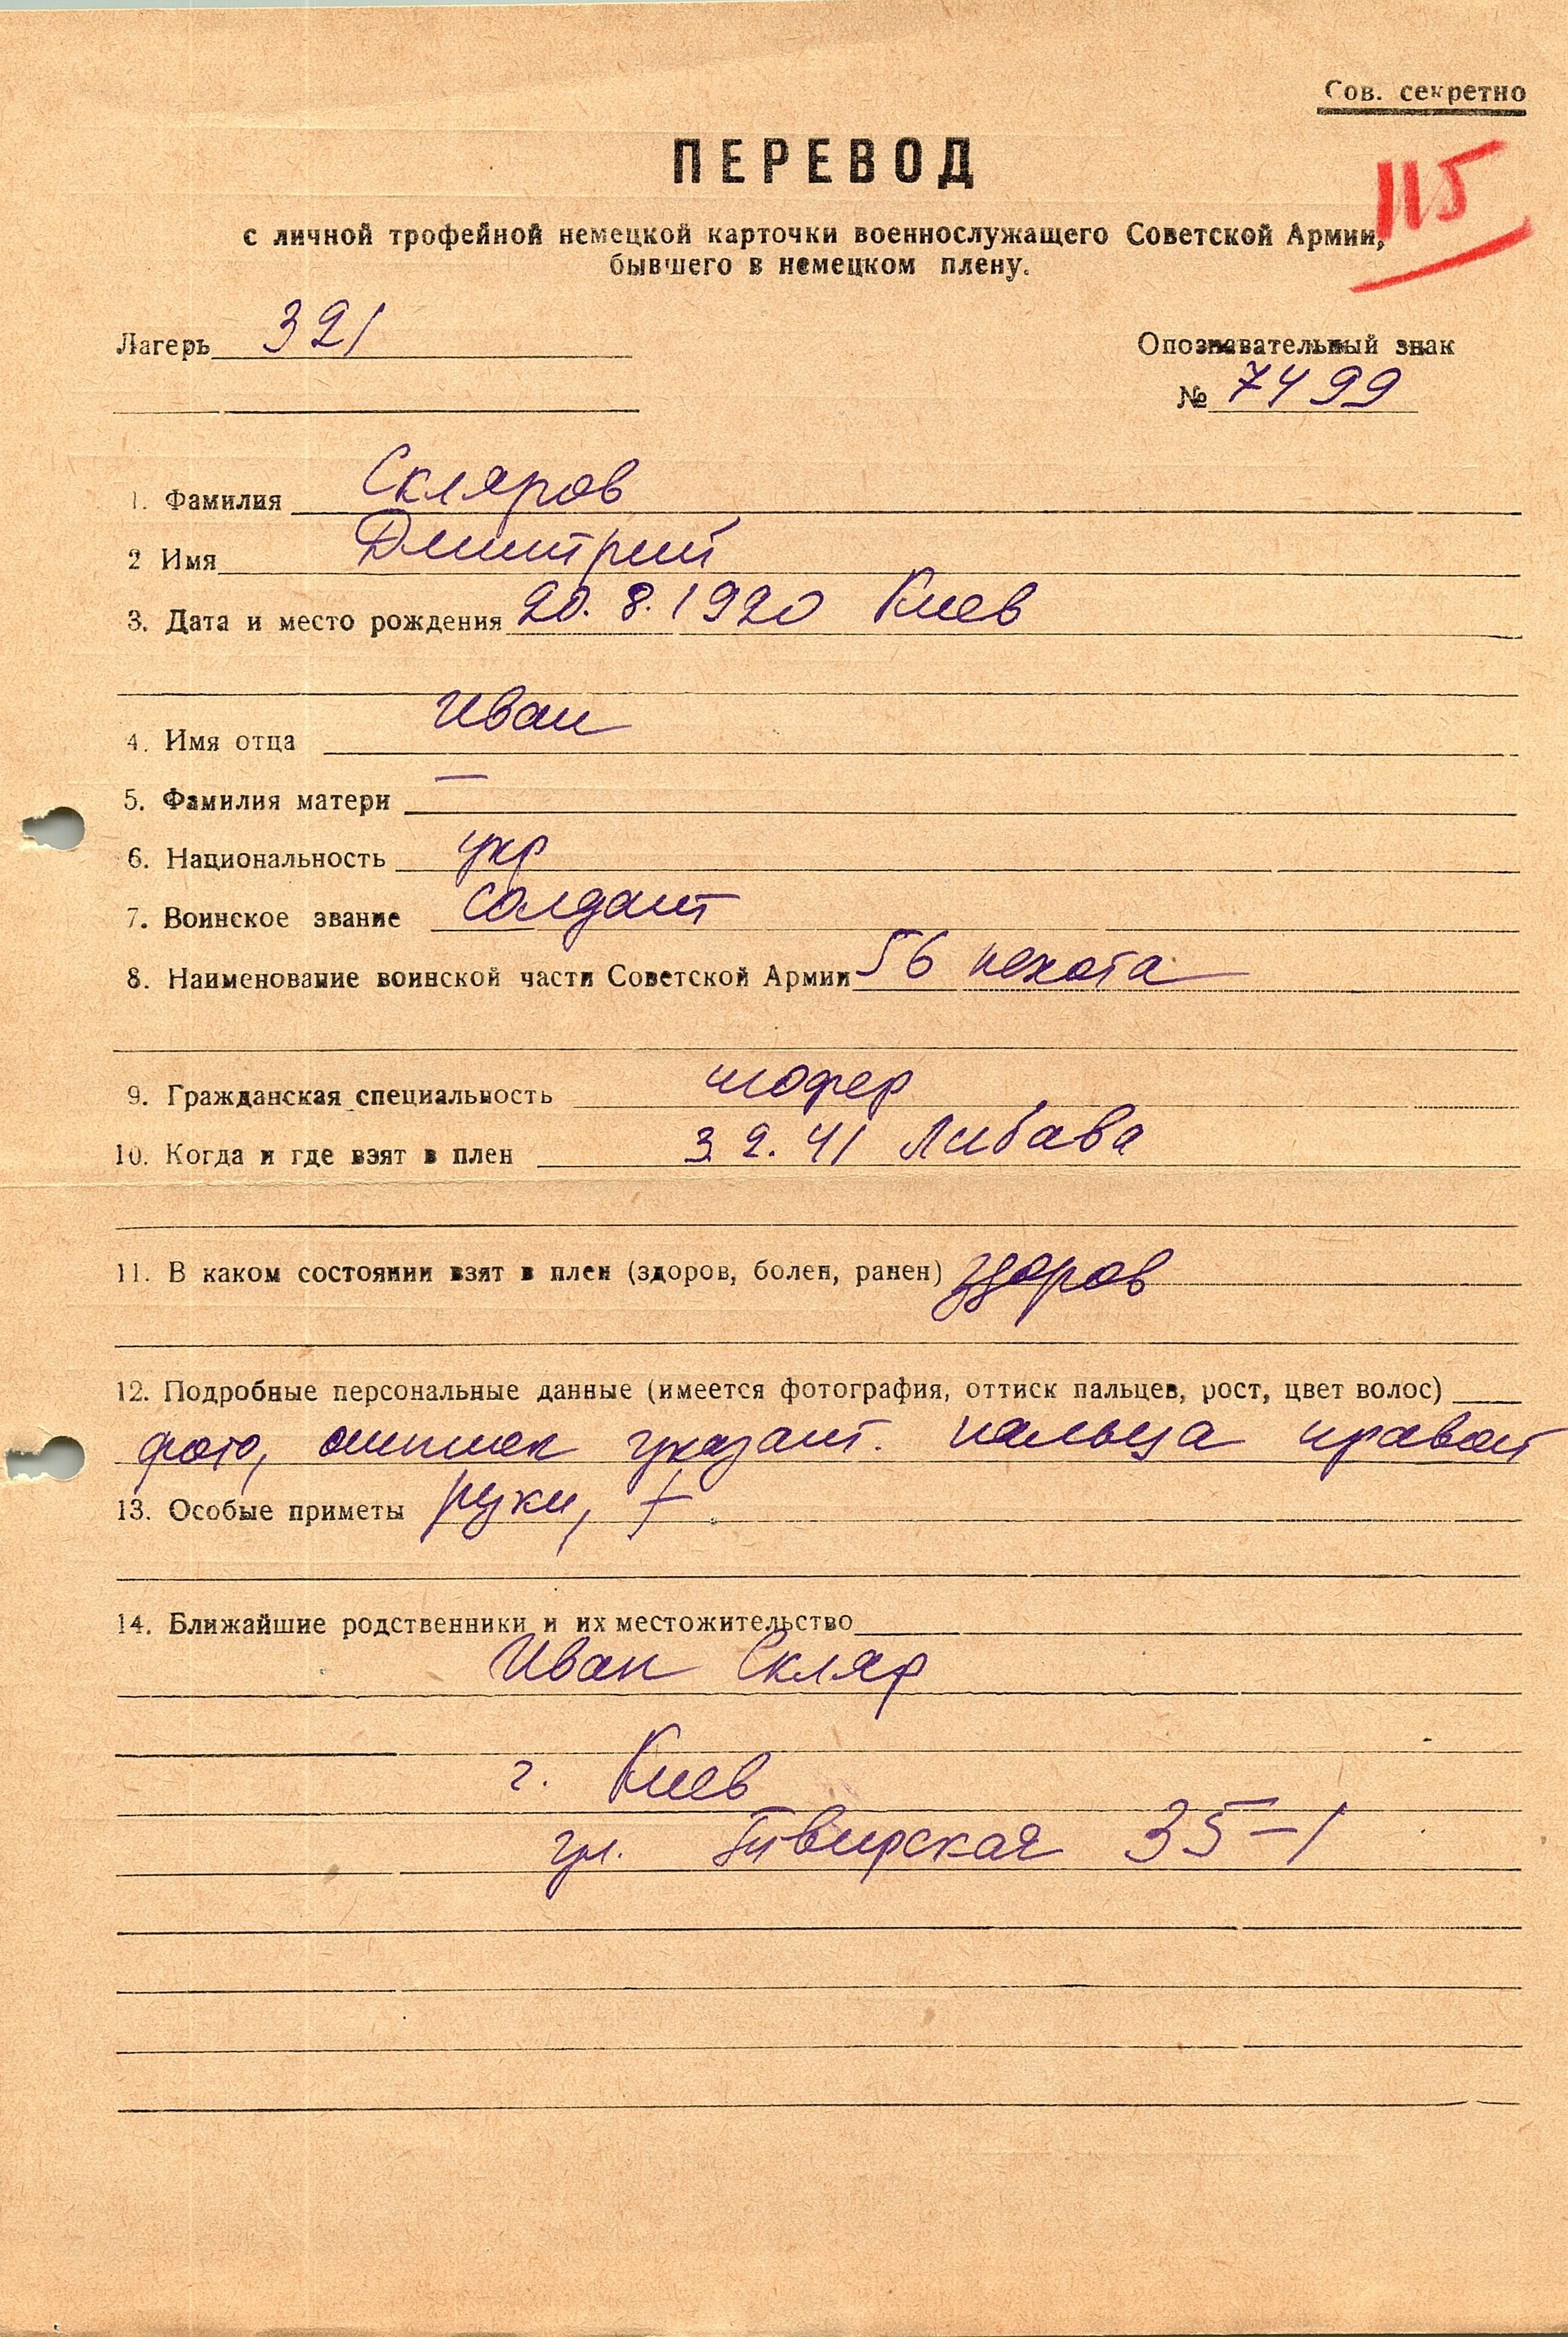 Сов. секретно
ПЕРЕВОД
115
с личной трофейной немецкой карточки военнослужащего Советской Армии,
бывшего в немецком плену.
Лагерь 321
Опознавательный знак
№ 7499
1. Фамилия Скляров
2 Имя Дмитрий
3. Дата и место рождения 20.8.1920 Киев
4. Имя отца Иван
5. Фамилия матери —
6. Национальность укр
7. Воинское звание солдат
8. Наименование воинской части Советской Армии 56 пехота
9. Гражданская специальность шофер
10. Когда и где взят в плен 3.2.41 Либава
11. В каком состоянии взят в плен (здоров, болен, ранен) здоров
12. Подробные персональные данные (имеется фотография, оттиск пальцев, рост, цвет волос)
фото, оттиск указат. пальца правой
13. Особые приметы руки, +
14. Ближайшие родственники и их местожительство
Иван Скляр
г. Киев
ул. Твирская 35-1